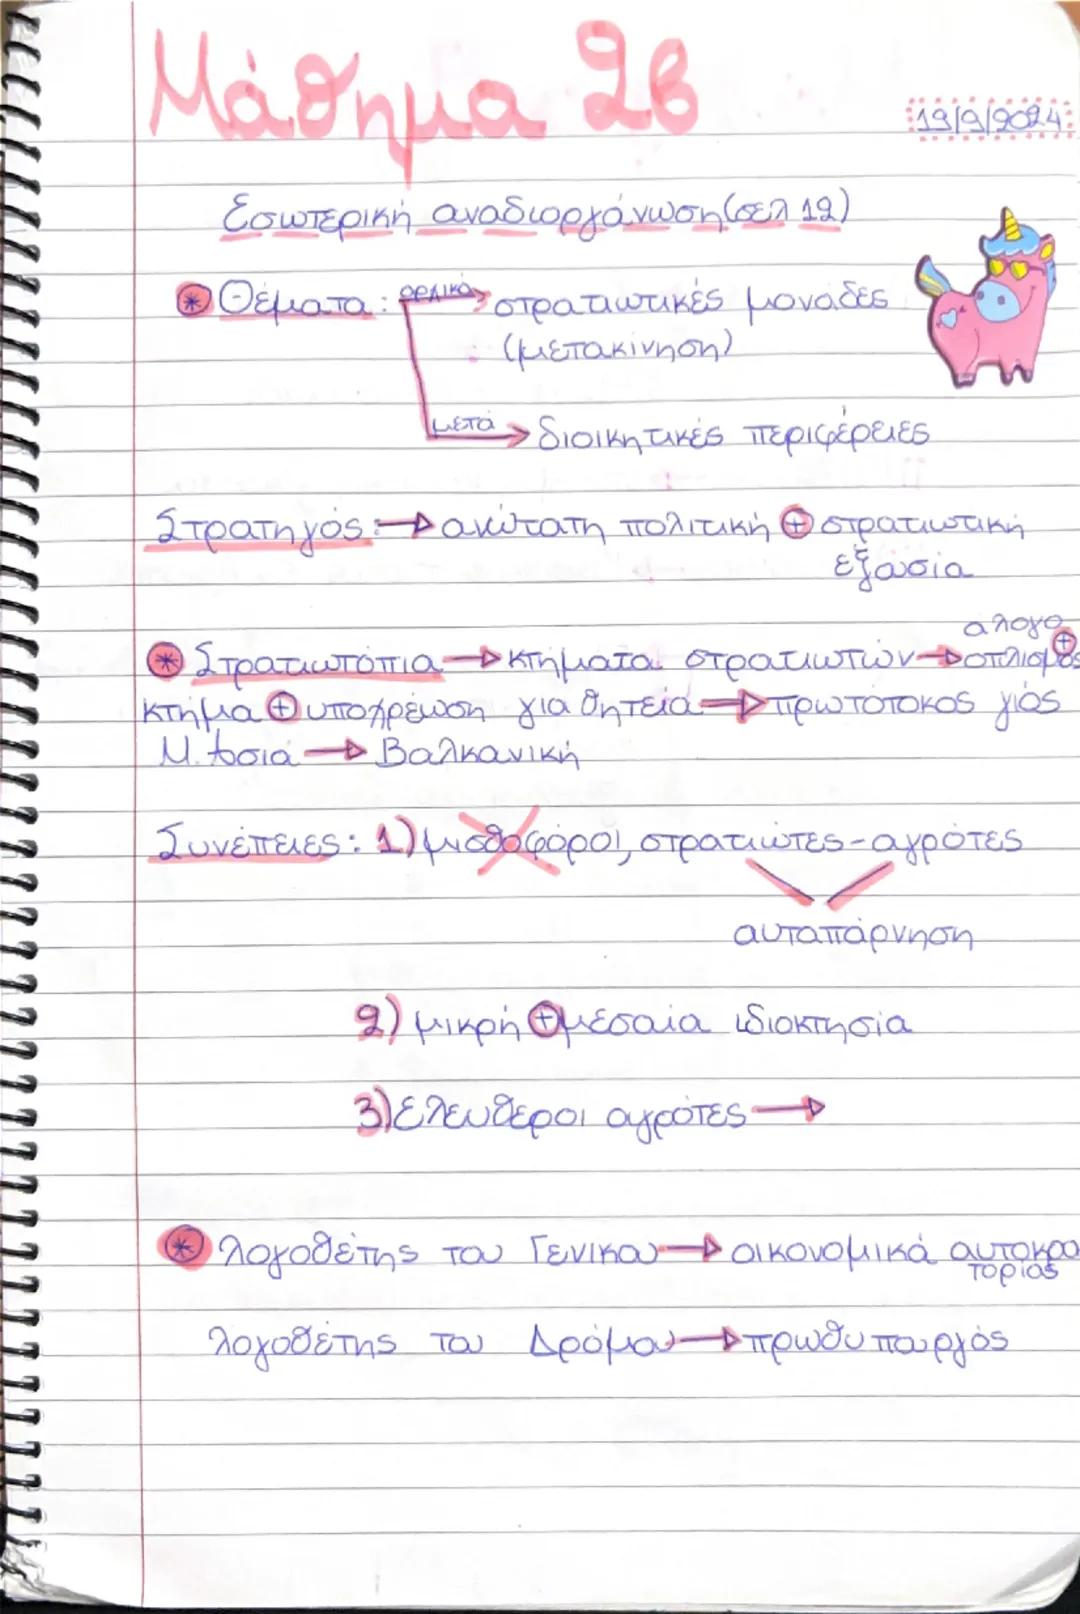 Μάθημα 2β
19/9/2024
Εσωτερική αναδιοργάνωση (σελ 12)
* Θέματα: αρχικά → στρατιωτικές μονάδες
(μετακίνηση)
μετά → διοικητικές περιφέρειες
Στρατηγός: → ανώτατη πολιτική + στρατιωτική
εξουσία
αλογο +
* Στρατιωτόπια → κτήματα στρατιωτών → οπλισμός
κτήμα + υποχρέωση για θητεία → πρωτότοκος γιός
Μ. Ασιά → Βαλκανική
Συνέπειες: 1) μισθοφόροι, στρατιώτες - αγρότες
αυταπάρνηση
2) μικρή + μεσαία ιδιοκτησία
3) Ελευθεροι αγρότες →
* λογοθέτης του Γενικου → οικονομικά αυτοκρα
τορίας
λογοθέτης του Δρόμου → πρωθυπουργός